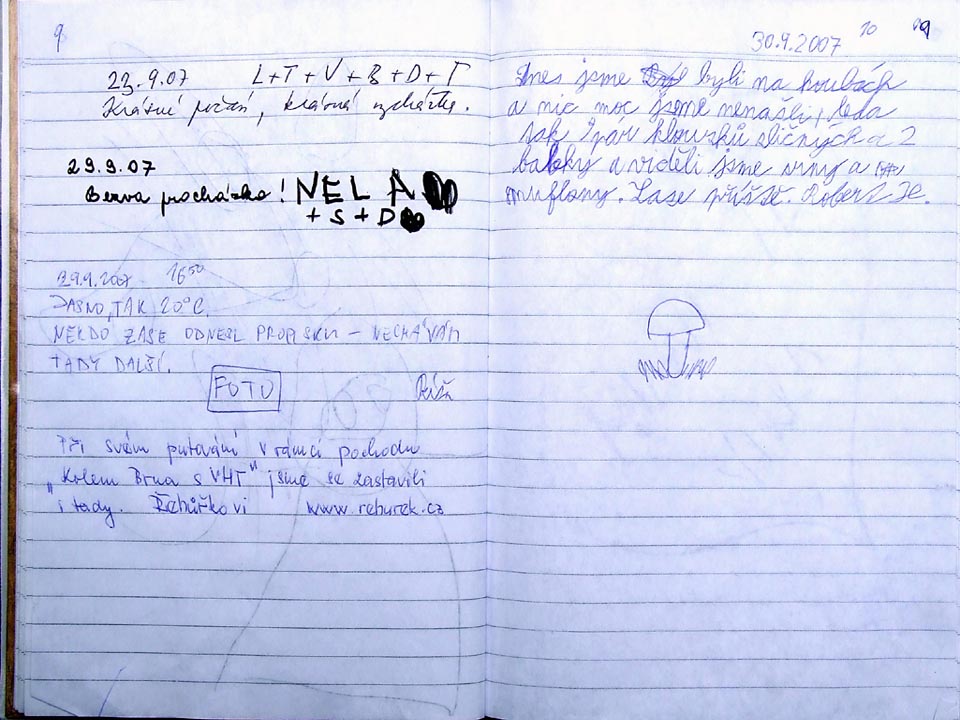 9
23.9.07 L+T+V+B+D+T
Krásné počasí, krásná vycházka.
29.9.07
Berva procházka! NELA
+ S + D
29.9.2007 16 50
JASNO, TAK 20°C,
NĚKDO ZASE ODNESL PROPISKU – NECHÁVÁM
TADY DALŠÍ.
FOTO Ríša
Při svém putování v rámci pochodu
„Kolem Brna s VHT" jsme se zastavili
i tady. Řehůřkovi www.rehurek.cz
10 9
30.9.2007
Dnes jsme byli na houbách
a nic moc jsme nenašli, leda
tak pár klouzků sličných a 2
babky a viděli jsme srny a
muflony. Zase příště. Robert Je.